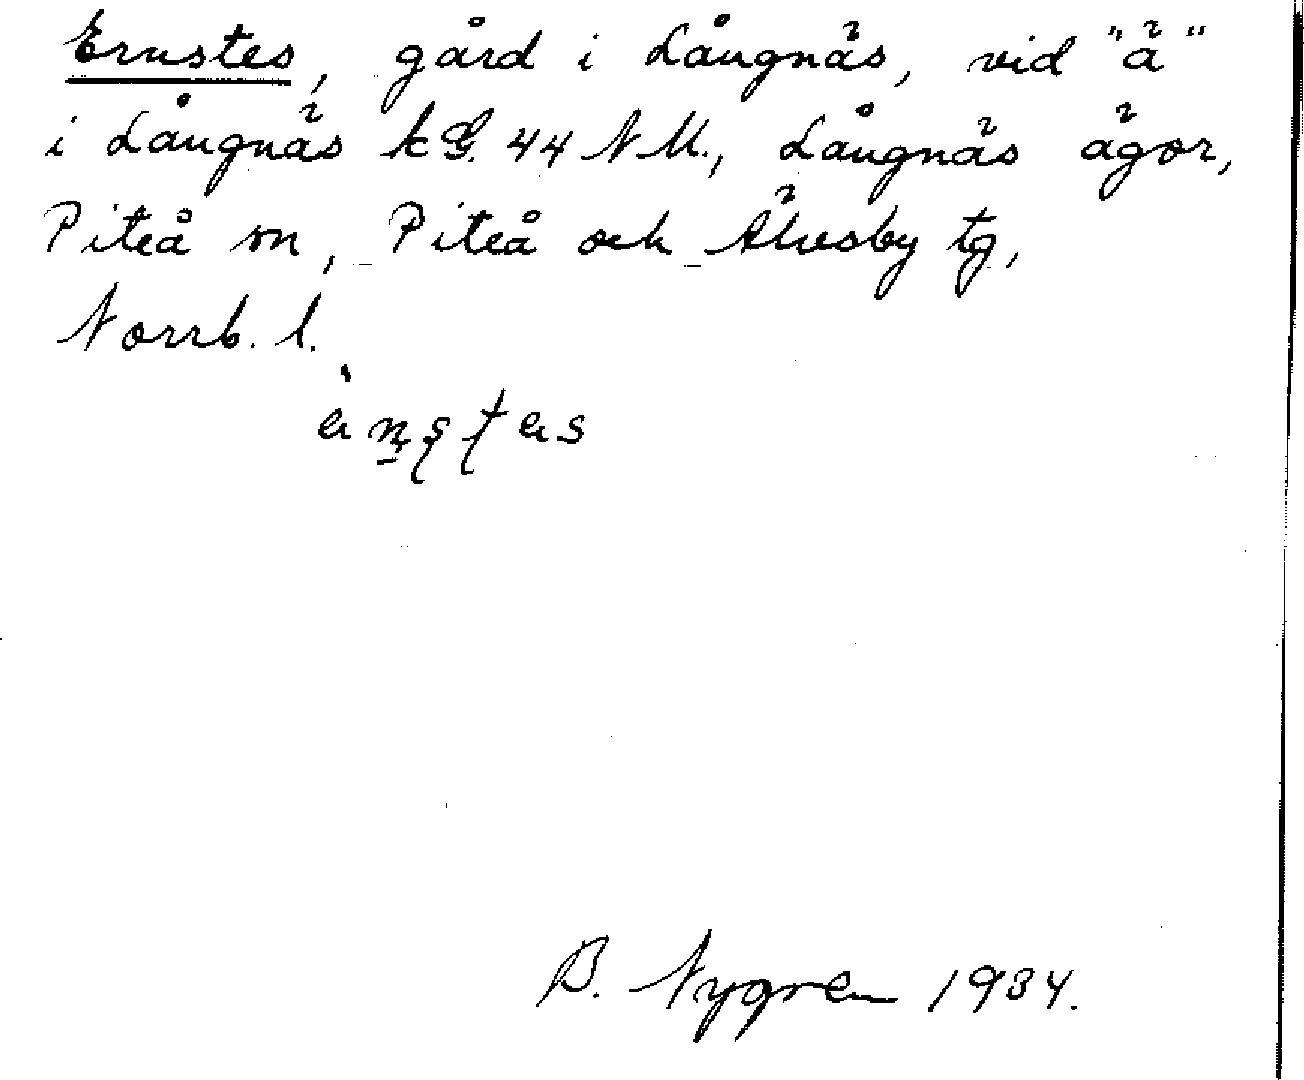 Ernstes, gård i Långnäs, vid "ä"
i Långnäs kG. 44 NM., Långnäs ägor,
Piteå sn, Piteå och Älvsby tg,
Norrb. l.
B. Nygren 1934.